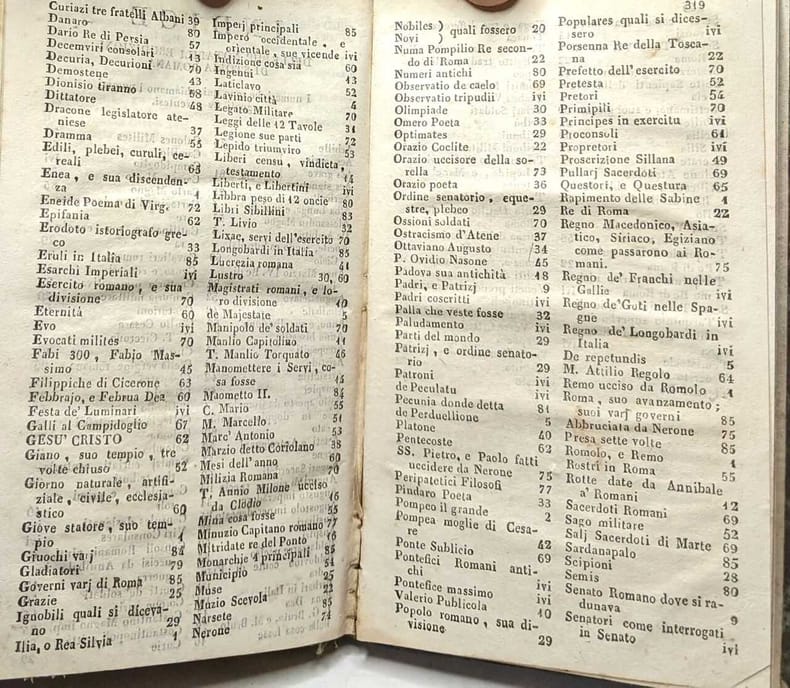 Curiazi tre fratelli Albani 39
Danaro 80
Dario Re di Persia 57
Decemviri consolari 43
Decuria, Decurioni 70
Demostene 43
Dionisio tiranno 58
Dittatore 48
Dracone legislatore ate-
niese 37
Dramma 55
Edili, plebei, curuli, ce-
reali 63
Enea, e sua discenden-
za 1
Eneide Poema di Virg. 72
Epifania 62
Erodoto istoriografo gre-
co 33
Eruli in Italia 85
Esarchi Imperiali ivi
Esercito romano, e sua
divisione 70
Eternità 60
Evo ivi
Evocati milites 70
Fabi 300, Fabio Mas-
simo 45
Filippiche di Cicerone 63
Febbrajo, e Februa Dea 60
Festa de' Luminari ivi
Galli al Campidoglio 67
GESU' CRISTO 62
Giano, suo tempio, tre
volte chiuso 52
Giorno naturale, artifi-
ziale, civile, ecclesia-
stico 60
Giove statore, suo tem-
pio 1
Giuochi varj 84
Gladiatori 79
Governi varj di Roma 85
Grazie 25
Ignobili quali si diceva-
no 29
Ilia, o Rea Silvia 1
Imperj principali 85
Imperò occidentale, e
orientale, sue vicende ivi
Indizione cosa sia 60
Ingenui 13
Laticlavo 52
Lavinio città 4
Legato Militare 70
Leggi del 12 Tavole 31
Legione sue parti 72
Lepido triumviro 53
Liberi censu, vindicta,
testamento 14
Liberti, e Libertini ivi
Libbra peso di 12 oncie 80
Libri Sibillini 83
T. Livio 32
Lixae, servi dell'esercito 70
Longobardi in Italia 85
Lucrezia romana 41
Lustro 30, 60
Magistrati romani, e lo-
ro divisione 40
de Majestate 5
Manipolo de' soldati 70
Manlio Capitolino 11
T. Manlio Torquato 46
Manomettere i Servi, co-
sa fosse 14
Maometto II. 84
C. Mario 55
M. Marcello 51
Marc' Antonio 53
Marzio detto Coriolano 38
Mesi dell'anno 60
Milizia Romana 70
T. Annio Milone ucciso
da Clodio 16
Mina cosa fosse 55
Minuzio Capitano romano 77
Mitridate re del Ponto 16
Monarchie 4 principali 85
Municipio 54
Muse 25
Muzio Scevola 22
Narsete 85
Nerone 74
Nobiles )
Novi ) quali fossero 20
Numa Pompilio Re secon-
do di Roma 22
Numeri antichi 80
Observatio de caelo 69
Observatio tripudii ivi
Olimpiade 30
Omero Poeta 33
Optimates 29
Orazio Coclite 22
Orazio uccisore della so-
rella 73
Orazio poeta 36
Ordine senatorio, eque-
stre, plebeo 29
Ossioni soldati 70
Ostracismo d'Atene 37
Ottaviano Augusto 34
P. Ovidio Nasone 45
Padova sua antichità 48
Padri, e Patrizj 9
Padri coscritti ivi
Palla che veste fosse 32
Paludamento ivi
Parti del mondo 29
Patrizj, e ordine senato-
rio 29
Patroni ivi
de Peculatu ivi
Pecunia donde detta 81
de Perduellione 5
Platone 40
Pentecoste 62
SS. Pietro, e Paolo fatti
uccidere da Nerone 75
Peripatetici Filosofi 77
Pindaro Poeta 33
Pompeo il grande 2
Pompea moglie di Cesa-
re 42
Ponte Sublicio 69
Pontefici Romani anti-
chi ivi
Pontefice massimo ivi
Valerio Publicola 40
Popolo romano, sua di-
visione 29
319
Populares quali si dices-
sero ivi
Porsenna Re della Tosca-
na 22
Prefetto dell' esercito 70
Pretesta 52
Pretori 54
Primipili 70
Principes in exercitu ivi
Proconsoli 61
Propretori ivi
Proscrizione Sillana 49
Pullarj Sacerdoti 69
Questori, e Questura 65
Rapimento delle Sabine 1
Re di Roma 22
Regno Macedonico, Asia-
tico, Siriaco, Egiziano
come passarono ai Ro-
mani. 75
Regno de' Franchi nelle
Gallie ivi
Regno de' Goti nelle Spa-
gne ivi
Regno de' Longobardi in
Italia ivi
De repetundis 5
M. Attilio Regolo 64
Remo ucciso da Romolo 1
Roma, suo avanzamento;
suoi varj governi 85
Abbruciata da Nerone 75
Presa sette volte 85
Romolo, e Remo 1
Rostri in Roma 55
Rotte date da Annibale
a' Romani 12
Sacerdoti Romani 69
Sago militare 52
Salj Sacerdoti di Marte 69
Sardanapalo 85
Scipioni 28
Semis 80
Senato Romano dove si ra-
dunava 9
Senatori come interrogati
in Senato ivi